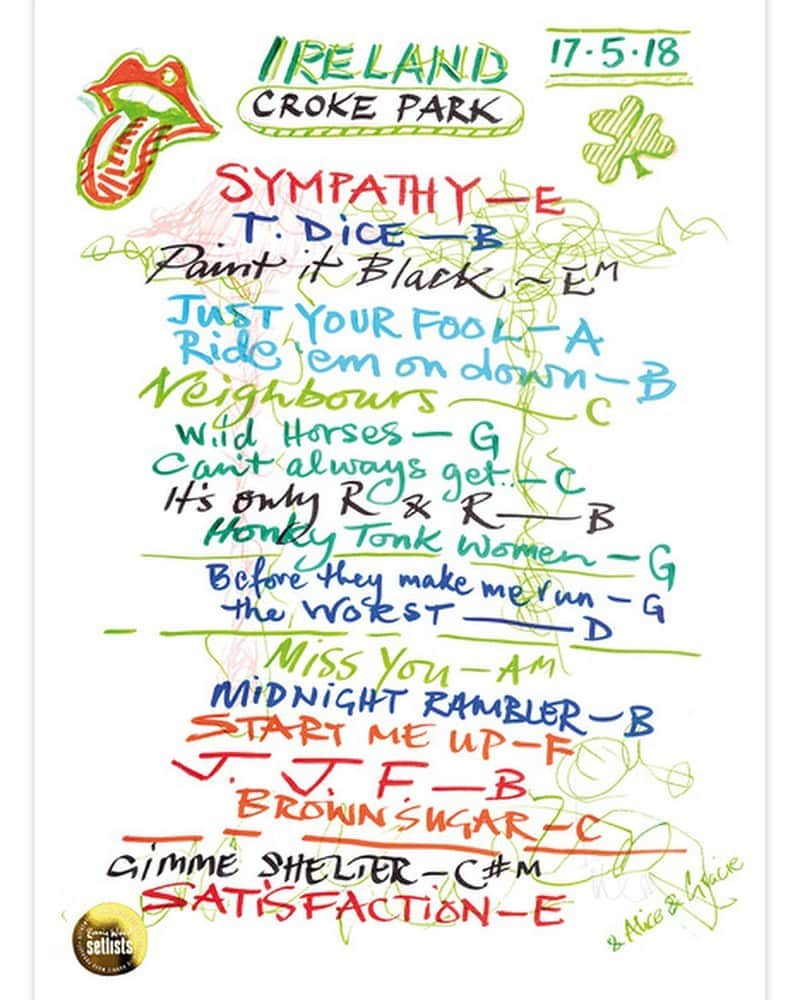 IRELAND
17·5·18
CROKE PARK
SYMPATHY—E
T. DiCE—B
Paint it Black ~ Eᴹ
JUST YOUR FOOL—A
Ride 'em on down—B
Neighbours — C
Wild Horses — G
Can't always get..—C
It's only R & R — B
Honky Tonk Women — G
Before they make me run — G
the WORST — D
Miss You — AM
MiDNiGHT RAMBLER—B
START ME UP—F
J. J. F.—B
BROWN SUGAR—C
GiMME SHELTER—C#M
SATiSFACTiON—E
& Alice & Gracie
Ronnie Wood
setlists